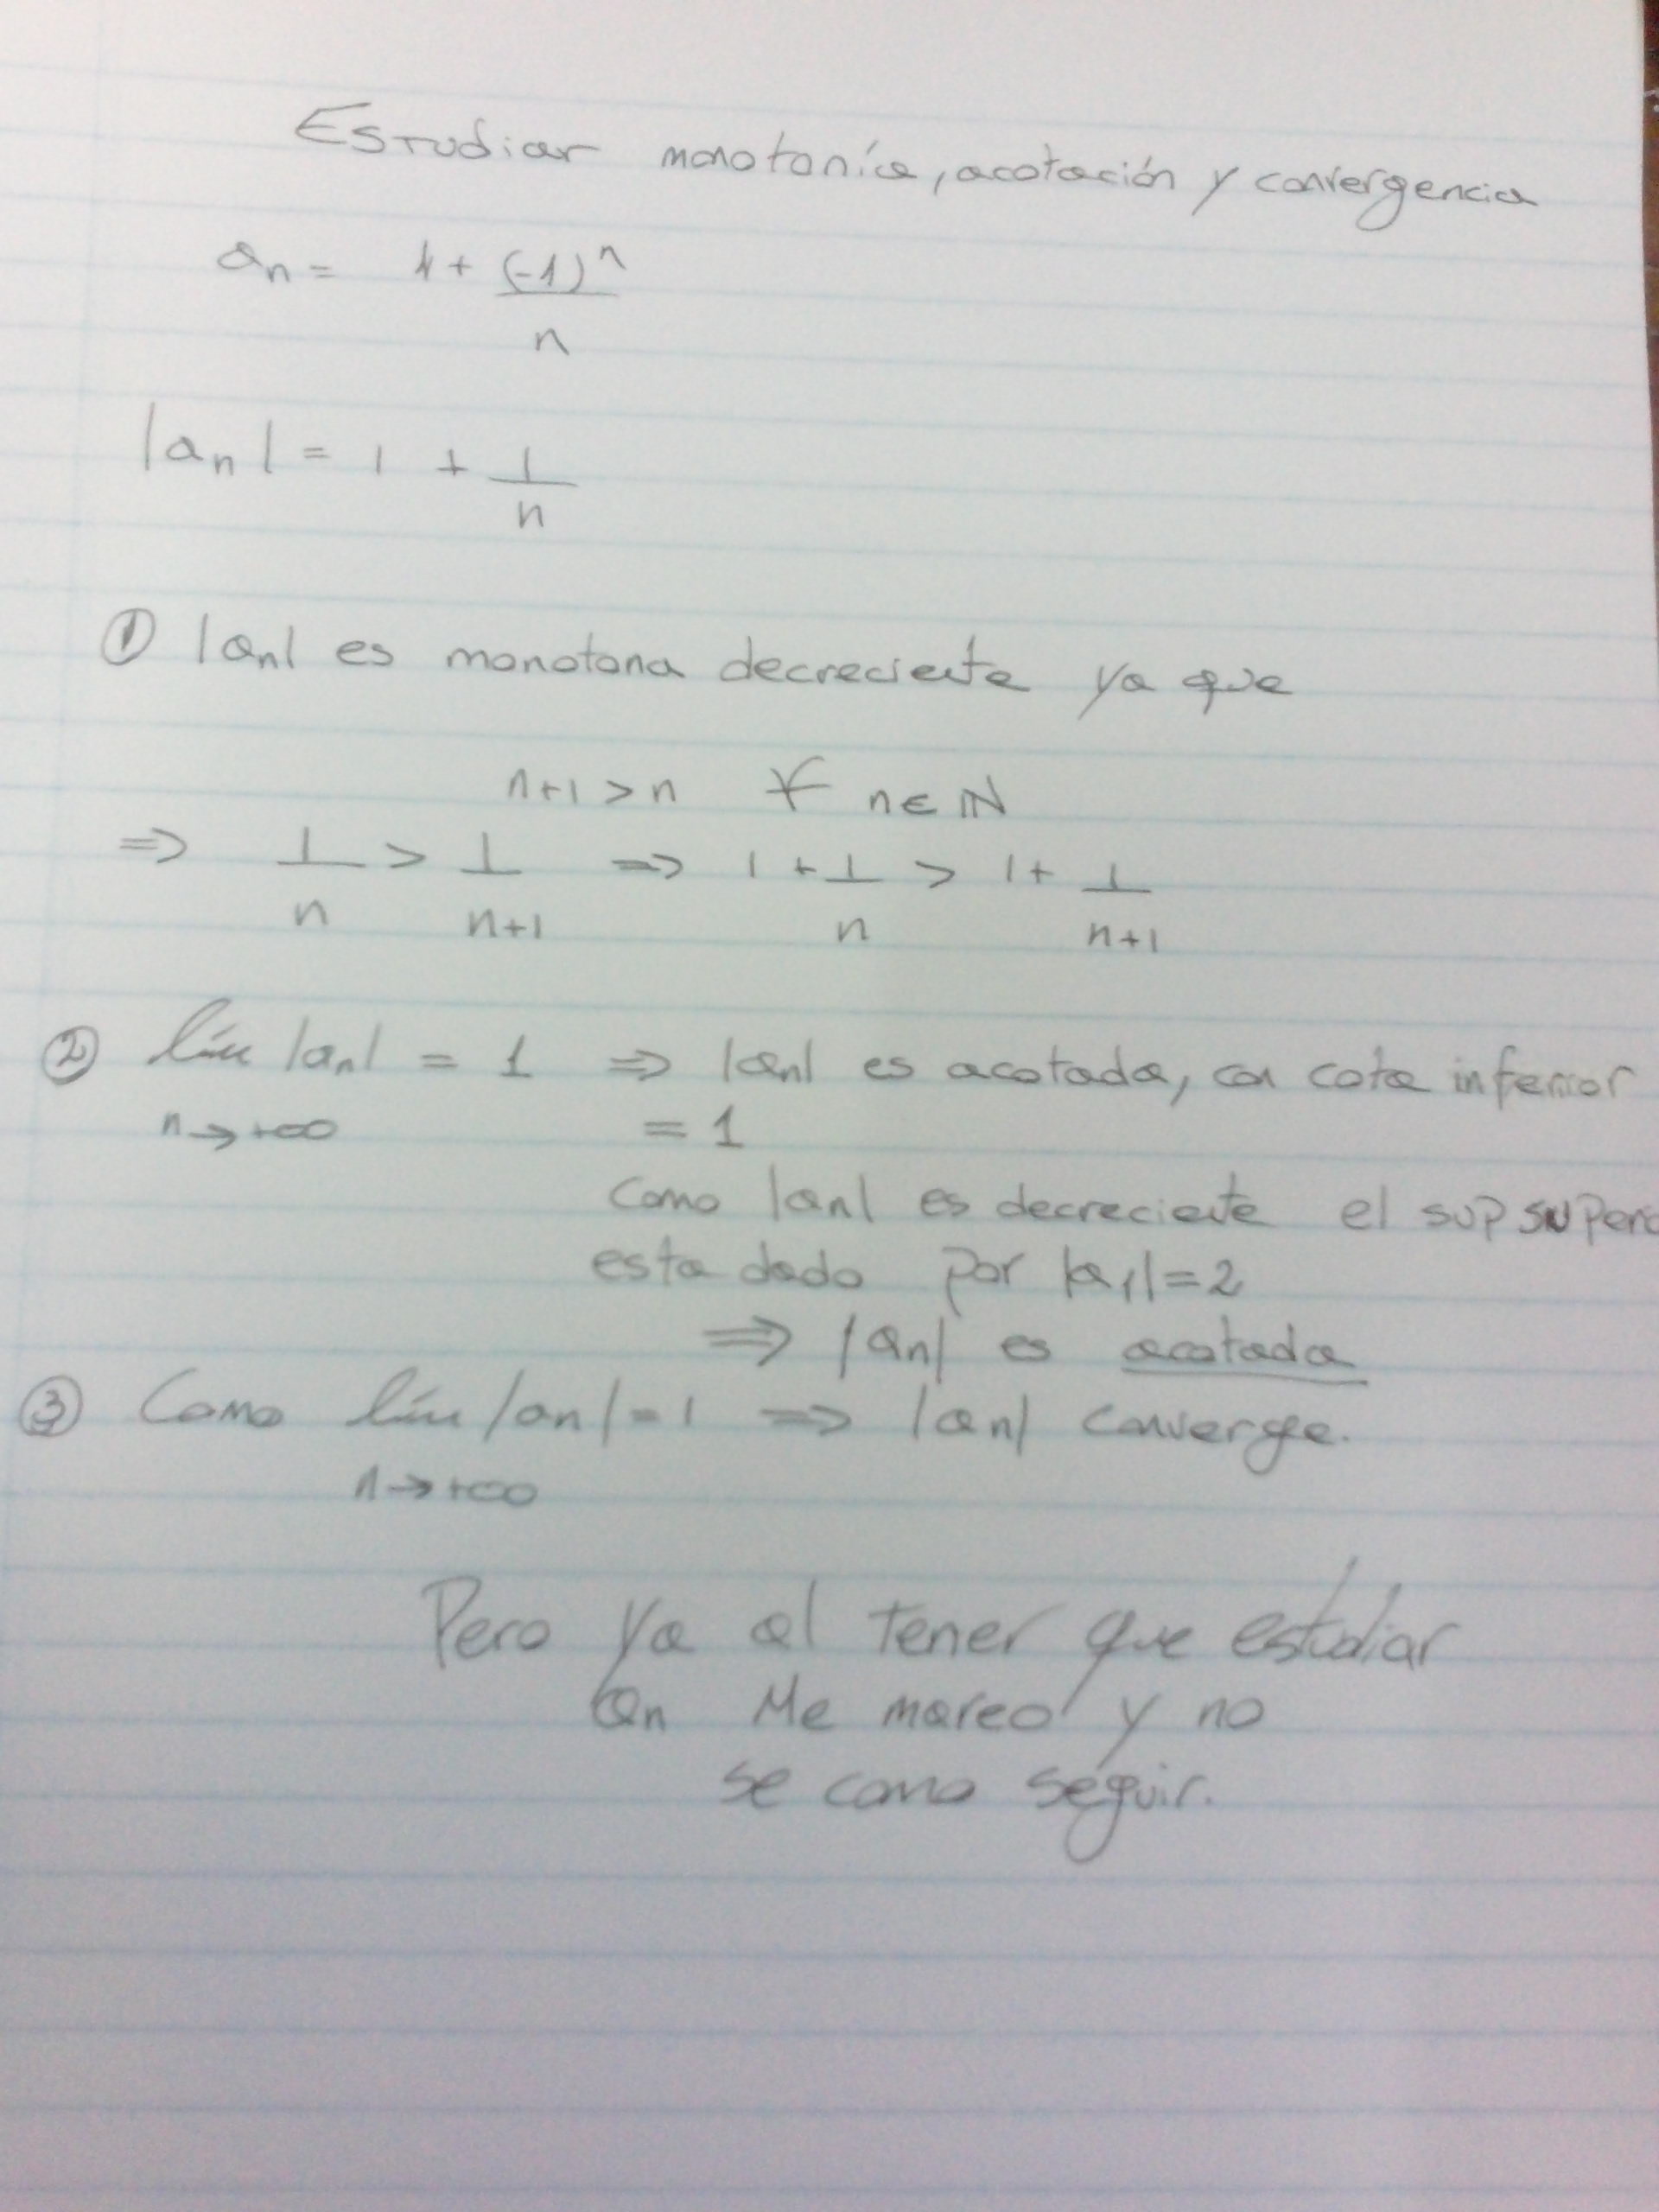 Estudiar monotonía, acotación y convergencia
an = 1 + (-1)^n / n
|an| = 1 + 1/n
① |an| es monotona decreciente ya que
n+1 > n ∀ n ∈ ℕ
⇒ 1/n > 1/(n+1) ⇒ 1 + 1/n > 1 + 1/(n+1)
② lím |an| = 1 ⇒ |an| es acotada, con cota inferior
n→+∞ = 1
Como |an| es decreciente el sup
esta dado por |a1| = 2
⇒ |an| es acotada
③ Como lím |an| = 1 ⇒ |an| converge.
n→+∞
Pero ya al tener que estudiar
an Me mareo y no
se como seguir.